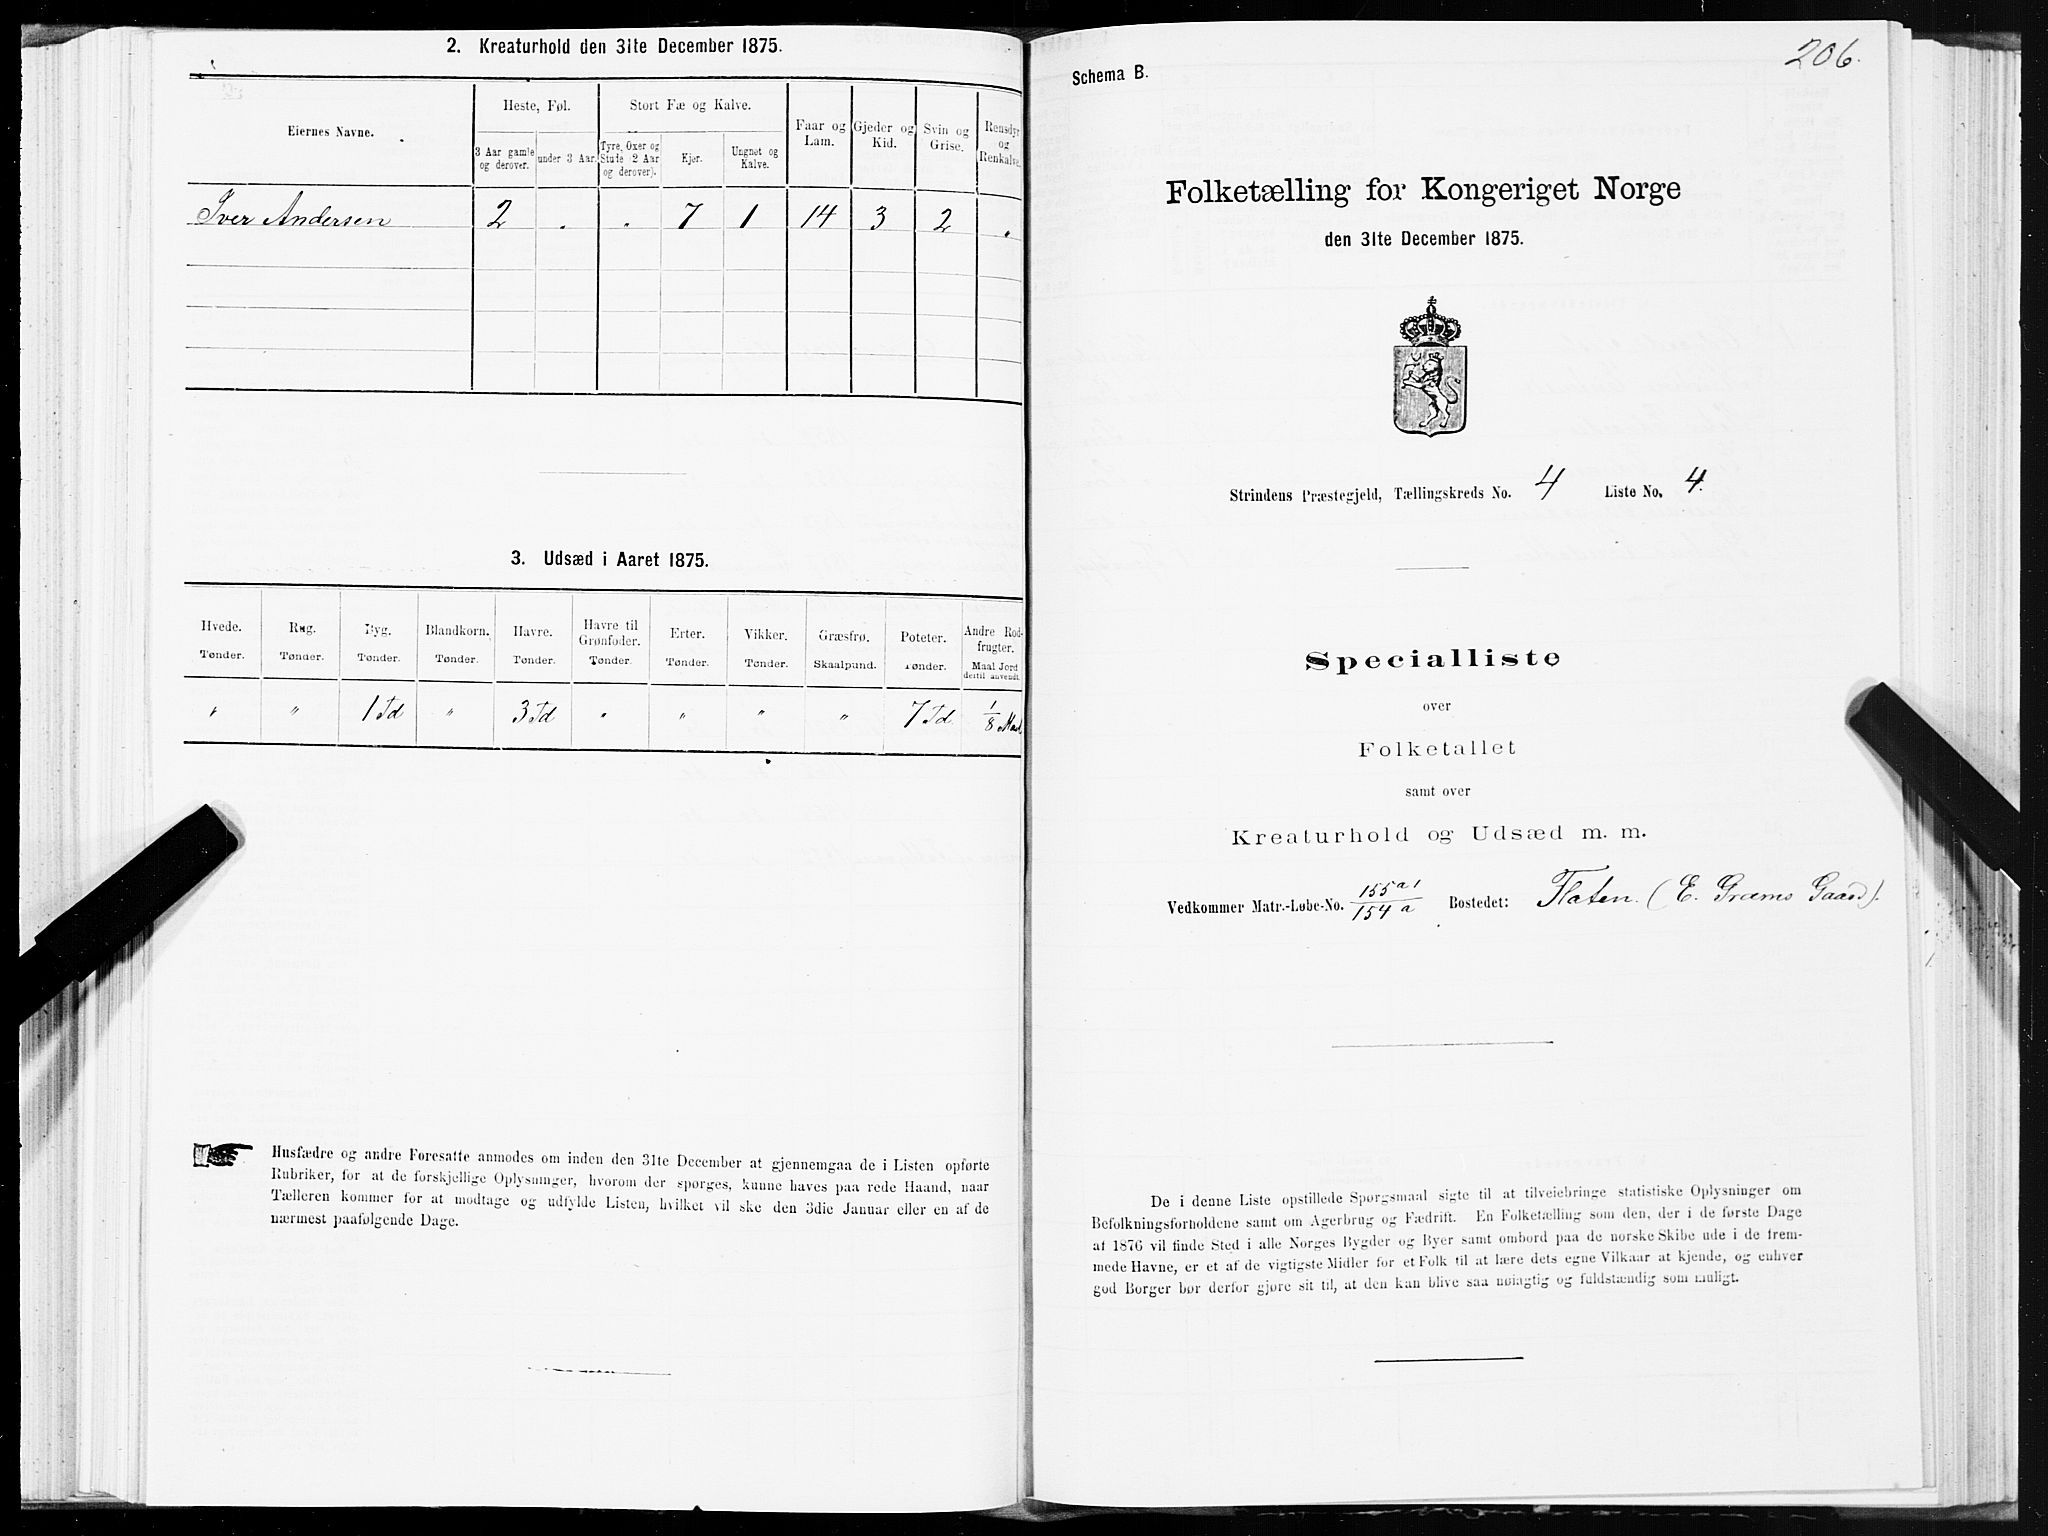 2. Kreaturhold den 31te December 1875.
Eiernes Navne.
Heste, Føl.
Stort Fæ og Kalve.
Faar og Lam.
Gjeder og Kid.
Svin og Grise.
Rensdyr og Renkalve.
3 Aar gamle og derover.
under 3 Aar.
Tyre, Oxer og Stude (2 Aar og derover).
Kjør.
Ungnøt og Kalve.
Iver Andersen 2 „ „ 7 1 14 3 2 „
3. Udsæd i Aaret 1875.
Hvede. Rug. Byg. Blandkorn. Havre. Havre til Grønfoder. Erter. Vikker. Græsfrø. Poteter. Andre Rodfrugter.
Tønder. Tønder. Tønder. Tønder. Tønder. Tønder. Tønder. Tønder. Skaalpund. Tønder. Maal Jord dertil anvendt.
„ „ 1 Td „ 3 Td „ „ „ „ 7 Td. 1/8 Maal
Husfædre og andre Foresatte anmodes om inden den 31te December at gjennemgaa de i Listen opførte
Rubriker, for at de forskjellige Oplysninger, hvorom der spørges, kunne haves paa rede Haand, naar
Tælleren kommer for at modtage og udfylde Listen, hvilket vil ske den 3die Januar eller en af de
nærmest paafølgende Dage.
206.
Schema B.
Folketælling for Kongeriget Norge
den 31te December 1875.
Strindens Præstegjeld, Tællingskreds No. 4 Liste No. 4.
Specialliste
over
Folketallet
samt over
Kreaturhold og Udsæd m. m.
Vedkommer Matr.-Løbe-No. 155a1/154a Bostedet: Flaten. (E. Græms Gaard).
De i denne Liste opstillede Spørgsmaal sigte til at tilveiebringe statistiske Oplysninger om
Befolkningsforholdene samt om Agerbrug og Fædrift. En Folketælling som den, der i de første Dage
af 1876 vil finde Sted i alle Norges Bygder og Byer samt ombord paa de norske Skibe ude i de frem-
mede Havne, er et af de vigtigste Midler for et Folk til at lære dets egne Vilkaar at kjende, og enhver
god Borger bør derfor gjøre sit til, at den kan blive saa nøiagtig og fuldstændig som muligt.